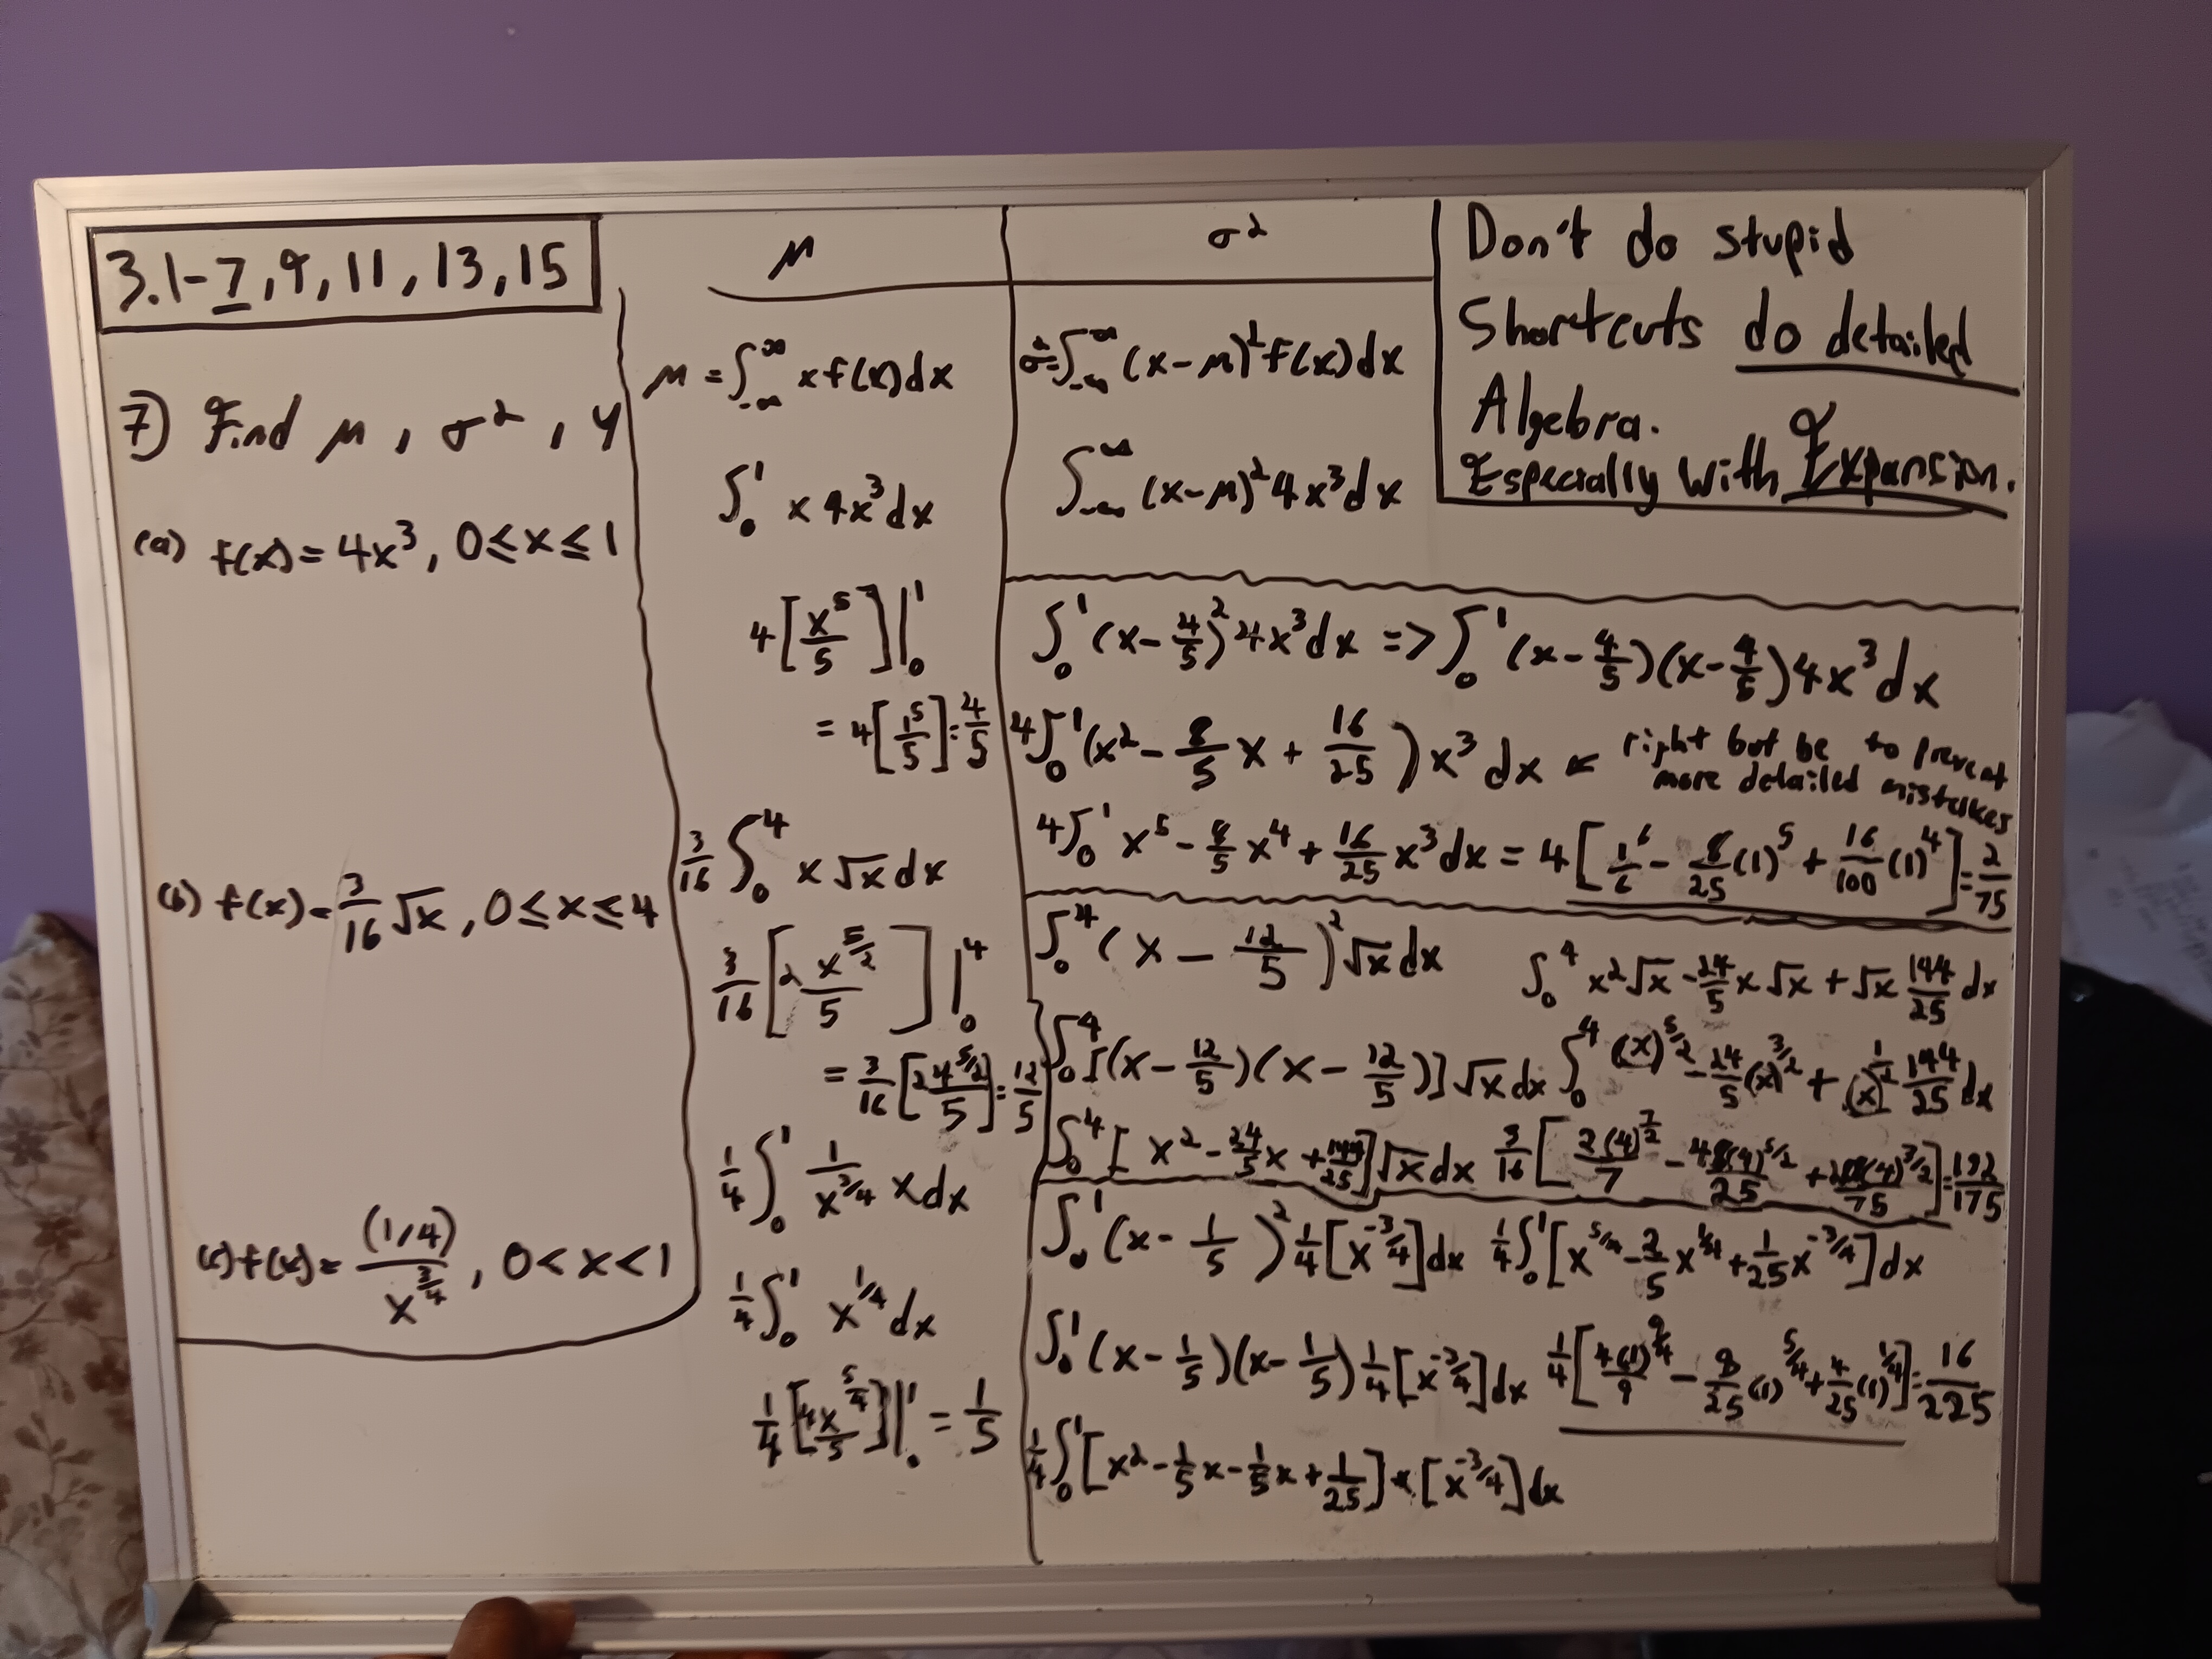 3.1-7, 9, 11, 13, 15
7) Find μ, σ², γ
(a) f(x) = 4x³, 0 ≤ x ≤ 1
(b) f(x) = 3/16 √x, 0 ≤ x ≤ 4
(c) f(x) = (1/4)/x^(3/4), 0 < x < 1
μ
μ = ∫_{-∞}^{∞} x f(x) dx
∫_0^1 x 4x³ dx
4[x⁵/5]|_0^1
= 4[1⁵/5] = 4/5
3/16 ∫_0^4 x √x dx
3/16 [2 x^(5/2)/5]|_0^4
= 3/16 [2 4^(5/2)/5] = 12/5
1/4 ∫_0^1 1/x^(3/4) x dx
1/4 ∫_0^1 x^(1/4) dx
1/4 [4x^(5/4)/5]|_0^1 = 1/5
σ²
σ² = ∫_{-∞}^{∞} (x-μ)² f(x) dx
∫_{-∞}^{∞} (x-μ)² 4x³ dx
Don't do stupid
Shortcuts do detailed
Algebra.
Especially with Expansion.
∫_0^1 (x - 4/5)² 4x³ dx => ∫_0^1 (x - 4/5)(x - 4/5) 4x³ dx
4∫_0^1 (x² - 8/5 x + 16/25) x³ dx ← right but be to prevent
more detailed mistakes
4∫_0^1 x⁵ - 8/5 x⁴ + 16/25 x³ dx = 4[1⁶/6 - 8/25 (1)⁵ + 16/100 (1)⁴] = 2/75
∫_0^4 (x - 12/5)² √x dx
∫_0^4 [(x - 12/5)(x - 12/5)] √x dx
∫_0^4 [x² - 24/5 x + 144/25] √x dx
∫_0^4 x² √x - 24/5 x √x + √x 144/25 dx
∫_0^4 (x)^(5/2) - 24/5 (x)^(3/2) + (x)^(1/2) 144/25 dx
3/16 [2(4)^(7/2)/7 - 48(4)^(5/2)/25 + (4)^(3/2)/75] = 192/175
∫_0^1 (x - 1/5)² 1/4 [x^(-3/4)] dx
∫_0^1 (x - 1/5)(x - 1/5) 1/4 [x^(-3/4)] dx
1/4 ∫_0^1 [x² - 1/5 x - 1/5 x + 1/25] * [x^(-3/4)] dx
1/4 ∫_0^1 [x^(5/4) - 2/5 x^(1/4) + 1/25 x^(-3/4)] dx
1/4 [4(1)^(9/4)/9 - 8/25 (1)^(5/4) + 4/25 (1)^(1/4)] = 16/225